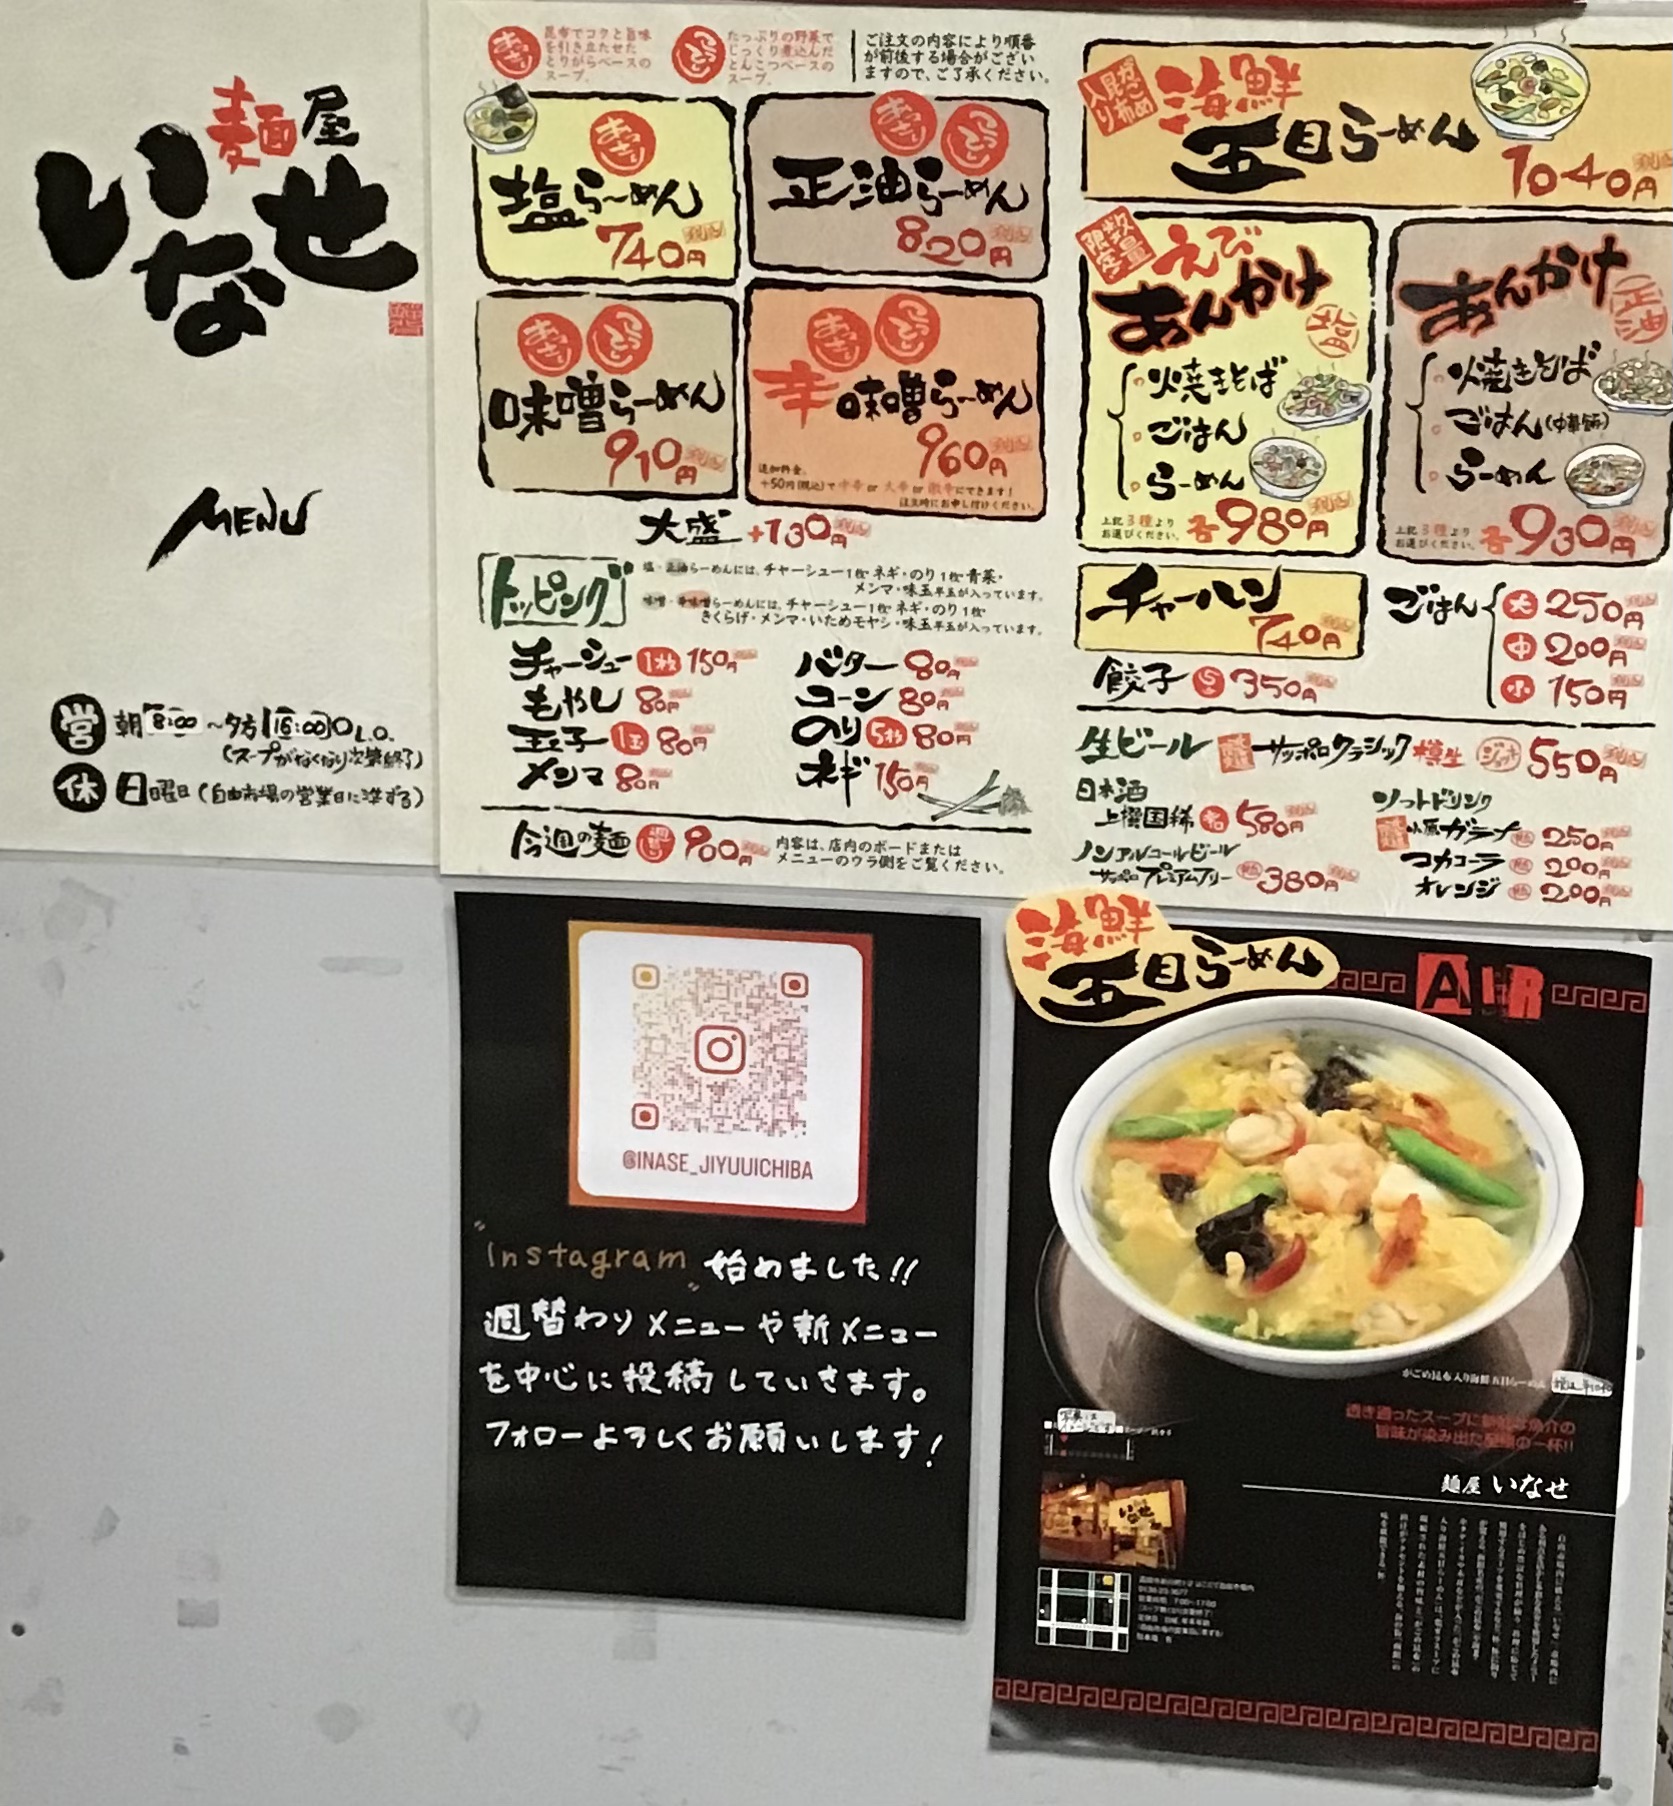 麺屋
いなせ
MENU
営 朝8:00~夕方16:00 L.O.
(スープがなくなり次第終了)
休 日曜日(自由市場の営業日に準ずる)
あっさり 昆布でコクと旨味
を引き立たせた
とりがらベースの
スープ。
こってり たっぷりの野菜で
じっくり煮込んだ
とんこつベースの
スープ。
ご注文の内容により順番
が前後する場合がござい
ますので、ご了承ください。
あっさり
塩らーめん
740円
あっさり こってり
正油らーめん
820円
あっさり こってり
味噌らーめん
910円
あっさり こってり
辛味噌らーめん
960円
追加料金、
+50円(税込)で中辛or大辛or激辛にできます!
注文時にお申し付けください。
大盛 +130円
トッピング
塩・正油らーめんには、チャーシュー1枚・ネギ・のり1枚・青菜・
メンマ・味玉半玉が入っています。
味噌・辛味噌らーめんには、チャーシュー1枚・ネギ・のり1枚・
きくらげ・メンマ・いためモヤシ・味玉半玉が入っています。
チャーシュー 1枚 150円
もやし 80円
玉子 1玉 80円
メンマ 80円
バター 80円
コーン 80円
のり 5枚 80円
ネギ 150円
今週の麺 週替り 900円
内容は、店内のボードまたは
メニューのウラ側をご覧ください。
がごめ昆布入り
海鮮
五目らーめん
1040円
数量限定
えび
あんかけ
塩
焼きそば
ごはん
らーめん
上記3種より
お選びください。
各980円
あんかけ
正油
焼きそば
ごはん(中華飯)
らーめん
上記3種より
お選びください。
各930円
チャーハン
740円
餃子 5コ 350円
ごはん 大 250円
中 200円
小 150円
生ビール サッポロクラシック 樽生 ジョッキ 550円
日本酒
上撰国稀 580円
ノンアルコールビール
サッポロプレミアムフリー 380円
ソフトドリンク
小原ガラナ 250円
コカコーラ 200円
オレンジ 200円
@INASE_JIYUUICHIBA
"Instagram" 始めました!!
週替わりメニューや新メニュー
を中心に投稿していきます。
フォローよろしくお願いします!
海鮮
五目らーめん
AIR
がごめ昆布入り海鮮五目らーめん
透き通ったスープに
旨味が染み出た 一杯!!
麺屋 いなせ
いなせ